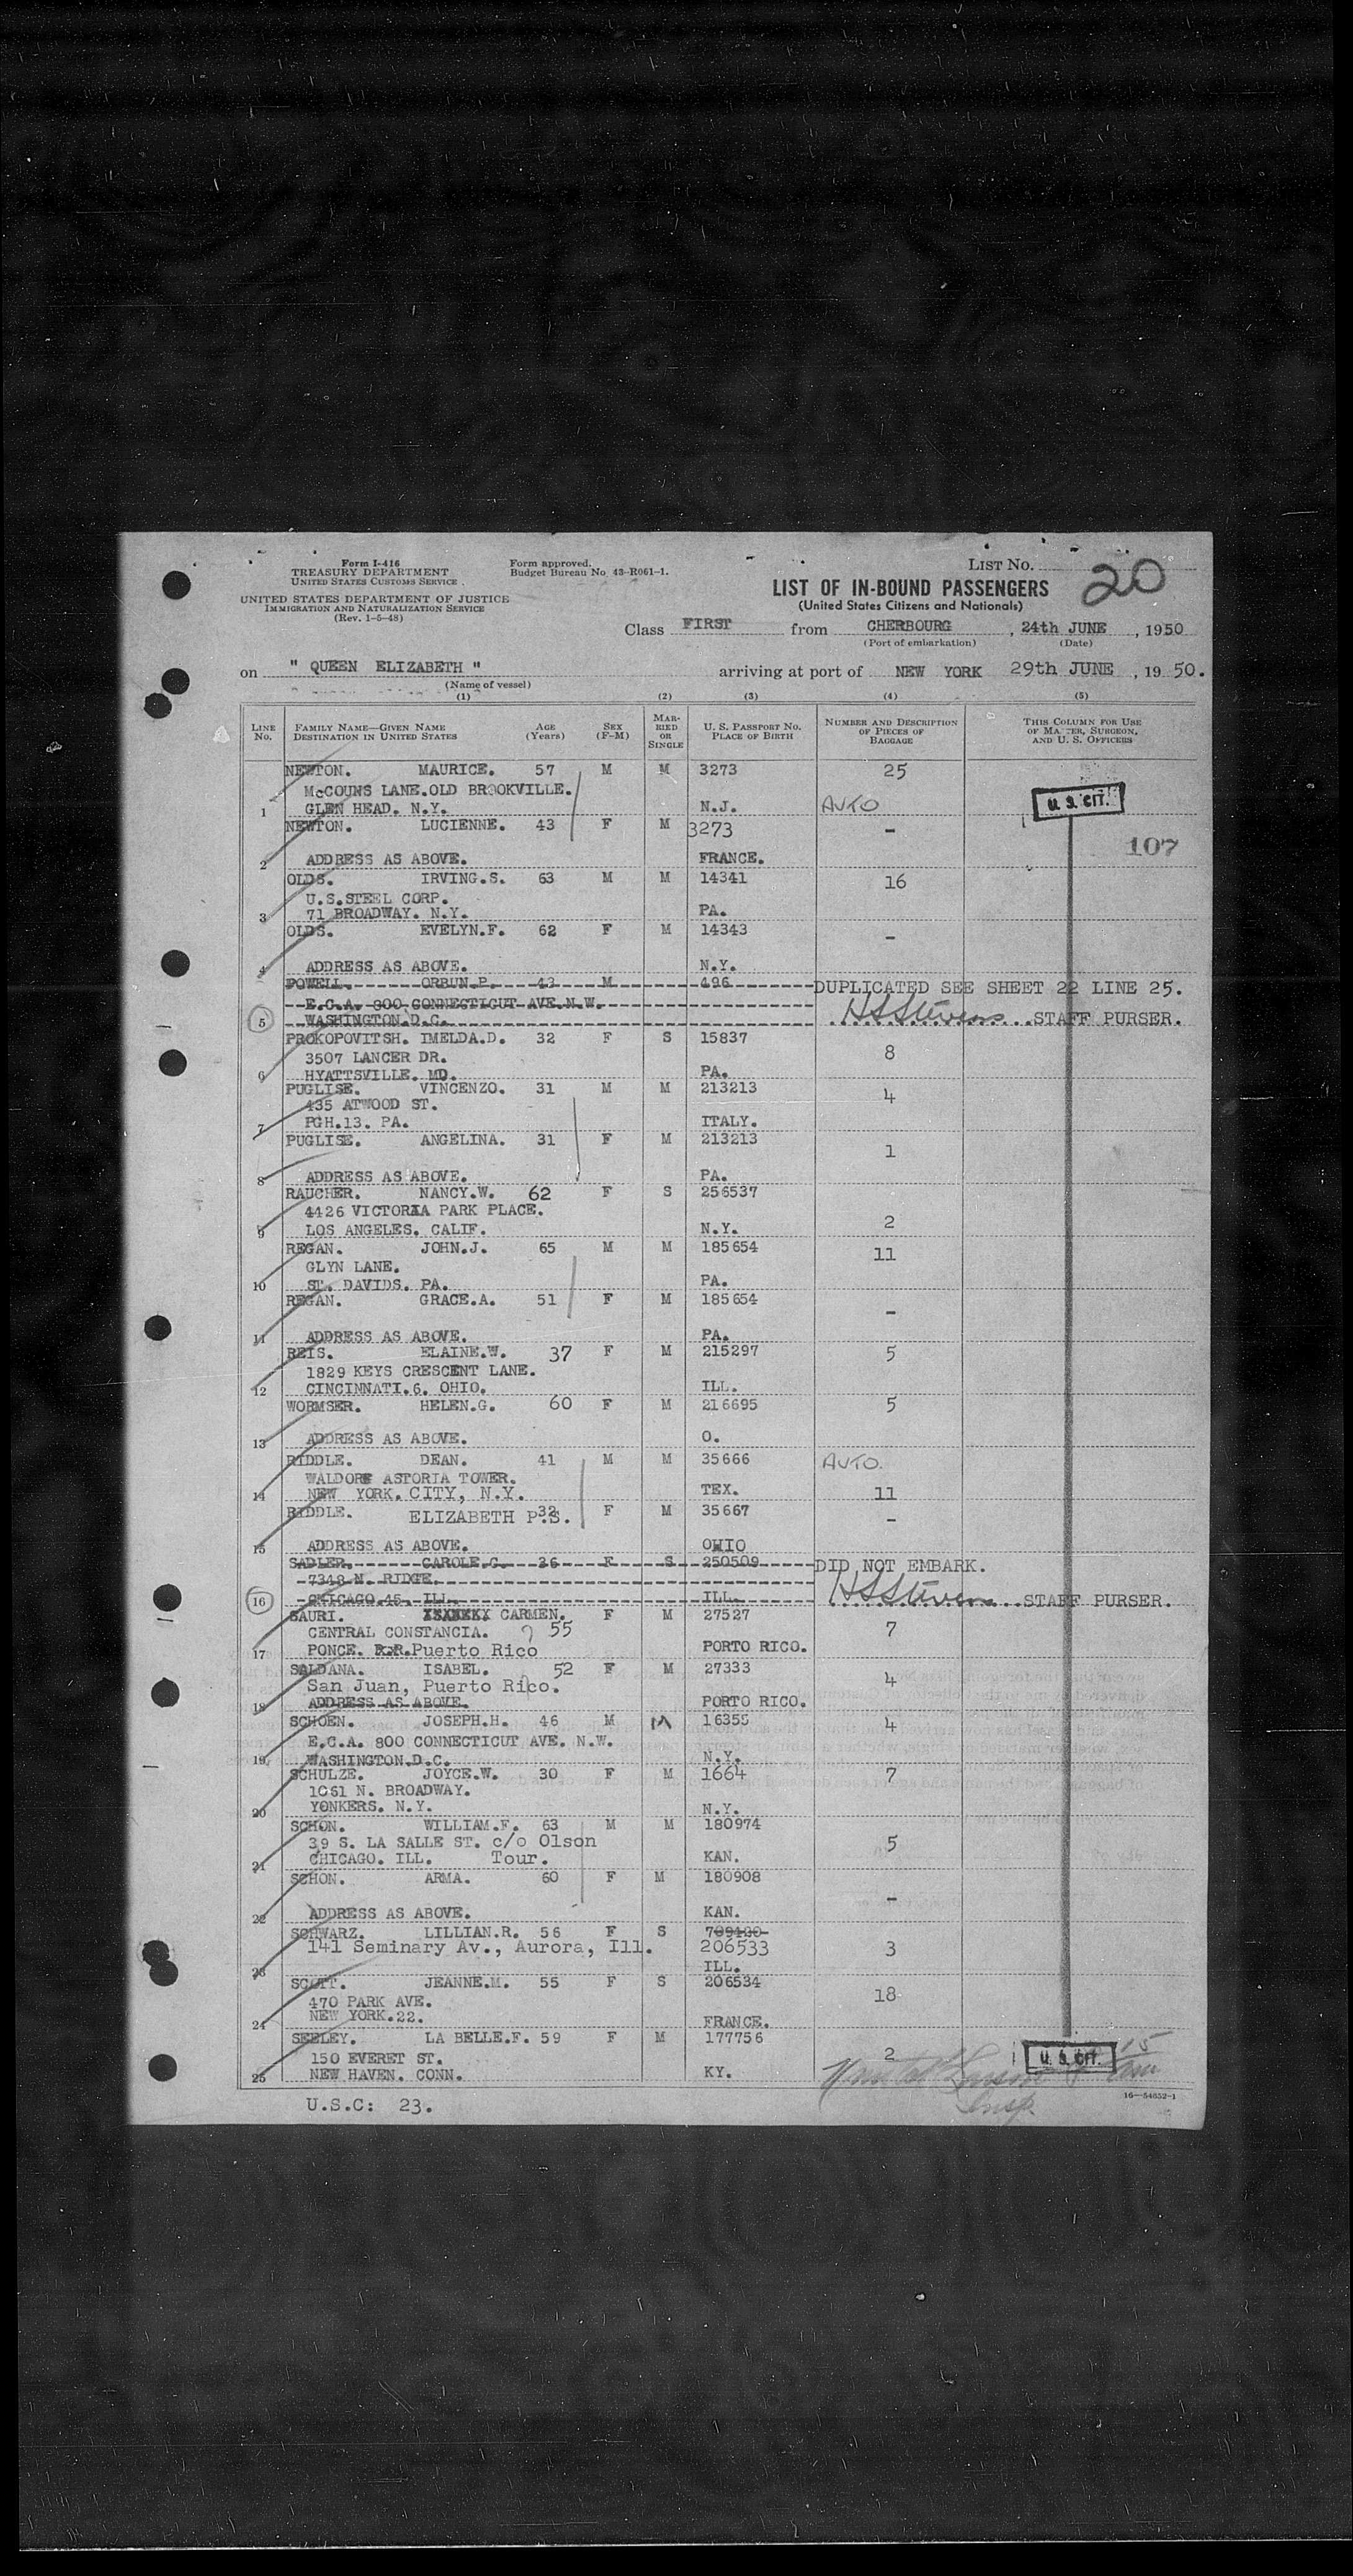 Form I-416
TREASURY DEPARTMENT
UNITED STATES CUSTOMS SERVICE
UNITED STATES DEPARTMENT OF JUSTICE
IMMIGRATION AND NATURALIZATION SERVICE
(Rev. 1-5-48)
Form approved.
Budget Bureau No. 43-R061-1.
LIST No. 20
LIST OF IN-BOUND PASSENGERS
(United States Citizens and Nationals)
Class FIRST from CHERBOURG, 24th JUNE, 1950
(Port of embarkation) (Date)
on " QUEEN ELIZABETH " arriving at port of NEW YORK 29th JUNE, 1950.
(Name of vessel)
(1) (2) (3) (4) (5)
LINE No. FAMILY NAME—GIVEN NAME DESTINATION IN UNITED STATES AGE (Years) SEX (F-M) MARRIED OR SINGLE U. S. PASSPORT NO. PLACE OF BIRTH NUMBER AND DESCRIPTION OF PIECES OF BAGGAGE THIS COLUMN FOR USE OF MASTER, SURGEON, AND U. S. OFFICERS
NEWTON. MAURICE. 57 M M 3273 25
McCOUNS LANE.OLD BROOKVILLE.
1 GLEN HEAD. N.Y. N.J. AUTO U. S. CIT.
NEWTON. LUCIENNE. 43 F M 3273 -
107
2 ADDRESS AS ABOVE. FRANCE.
OLDS. IRVING.S. 63 M M 14341 16
U.S.STEEL CORP.
3 71 BROADWAY. N.Y. PA.
OLDS. EVELYN.F. 62 F M 14343 -
4 ADDRESS AS ABOVE. N.Y.
POWELL. ORBUN.P. 43 M 496 DUPLICATED SEE SHEET 22 LINE 25.
E.C.A. 800 CONNECTICUT AVE.N.W.
5 WASHINGTON.D.C. HSStevens STAFF PURSER.
PROKOPOVITSH. IMELDA.D. 32 F S 15837 8
3507 LANCER DR.
6 HYATTSVILLE. MD. PA.
PUGLISE. VINCENZO. 31 M M 213213 4
435 ATWOOD ST.
7 PGH.13. PA. ITALY.
PUGLISE. ANGELINA. 31 F M 213213 1
8 ADDRESS AS ABOVE. PA.
RAUCHER. NANCY.W. 62 F S 256537
4426 VICTORIA PARK PLACE.
9 LOS ANGELES. CALIF. N.Y. 2
REGAN. JOHN.J. 65 M M 185654 11
GLYN LANE.
10 ST. DAVIDS. PA. PA.
REGAN. GRACE.A. 51 F M 185654 -
11 ADDRESS AS ABOVE. PA.
REIS. ELAINE.W. 37 F M 215297 5
1829 KEYS CRESCENT LANE.
12 CINCINNATI.6. OHIO. ILL.
WORMSER. HELEN.G. 60 F M 216695 5
13 ADDRESS AS ABOVE. O.
RIDDLE. DEAN. 41 M M 35666 AUTO.
WALDORF ASTORIA TOWER.
14 NEW YORK. CITY, N.Y. TEX. 11
RIDDLE. ELIZABETH P.S. 32 F M 35667 -
15 ADDRESS AS ABOVE. OHIO
SADLER. CAROLE.C. 26 F S 250509 DID NOT EMBARK.
7348 N. RIDGE.
16 CHICAGO.45. ILL. ILL. HSStevens STAFF PURSER.
SAURI. CARMEN. F M 27527 7
CENTRAL CONSTANCIA. ? 55
17 PONCE. P.R. Puerto Rico PORTO RICO.
SALDANA. ISABEL. 52 F M 27333 4
San Juan, Puerto Rico.
18 ADDRESS AS ABOVE. PORTO RICO.
SCHOEN. JOSEPH.H. 46 M M 16355 4
E.C.A. 800 CONNECTICUT AVE. N.W.
19 WASHINGTON.D.C. N.Y.
SCHULZE. JOYCE.W. 30 F M 1664 7
1061 N. BROADWAY.
20 YONKERS. N.Y. N.Y.
SCHON. WILLIAM.F. 63 M M 180974
39 S. LA SALLE ST. c/o Olson 5
21 CHICAGO. ILL. Tour. KAN.
SCHON. ARMA. 60 F M 180908 -
22 ADDRESS AS ABOVE. KAN.
SCHWARZ. LILLIAN.R. 56 F S
141 Seminary Av., Aurora, Ill. 206533 3
23 ILL.
SCOTT. JEANNE.M. 55 F S 206534
470 PARK AVE. 18
24 NEW YORK.22. FRANCE.
SEELEY. LA BELLE.F. 59 F M 177756
150 EVERET ST. 2 U. S. CIT. 15
25 NEW HAVEN. CONN. KY.
Insp.
16—54652-1
U.S.C: 23.